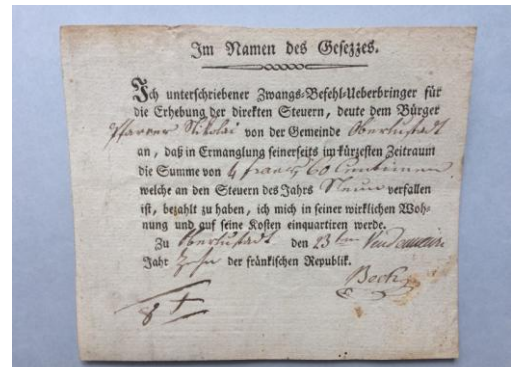 Im Namen des Gesezzes.
Ich unterschriebener Zwangs-Befehl-Ueberbringer für
die Erhebung der direkten Steuern, deute dem Bürger
Pfarrer Nikolai von der Gemeinde Oberlustadt
an, daß in Ermanglung seinerseits im kürzesten Zeitraum
die Summe von 4 francs 60 Centimen
welche an den Steuern des Jahrs Neun verfallen
ist, bezahlt zu haben, ich mich in seiner wirklichen Woh-
nung und auf seine Kosten einquartiren werde.
Zu Oberlustadt den 23ten Vendemiaire
Jahr Zehn der fränkischen Republik.
Bock